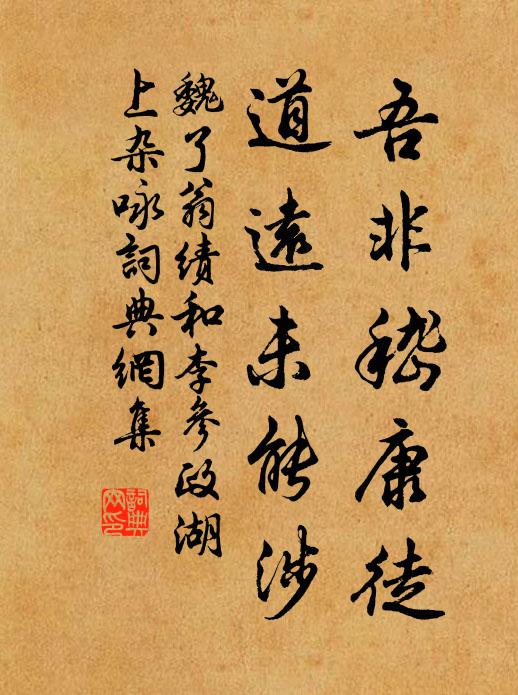 吾非嵇康徒
道遠未能涉
魏了翁績和李參政湖
上杂咏詞典網集
詞典
网印